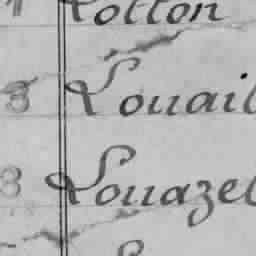 Lotton
3 Louail
3 Louazel